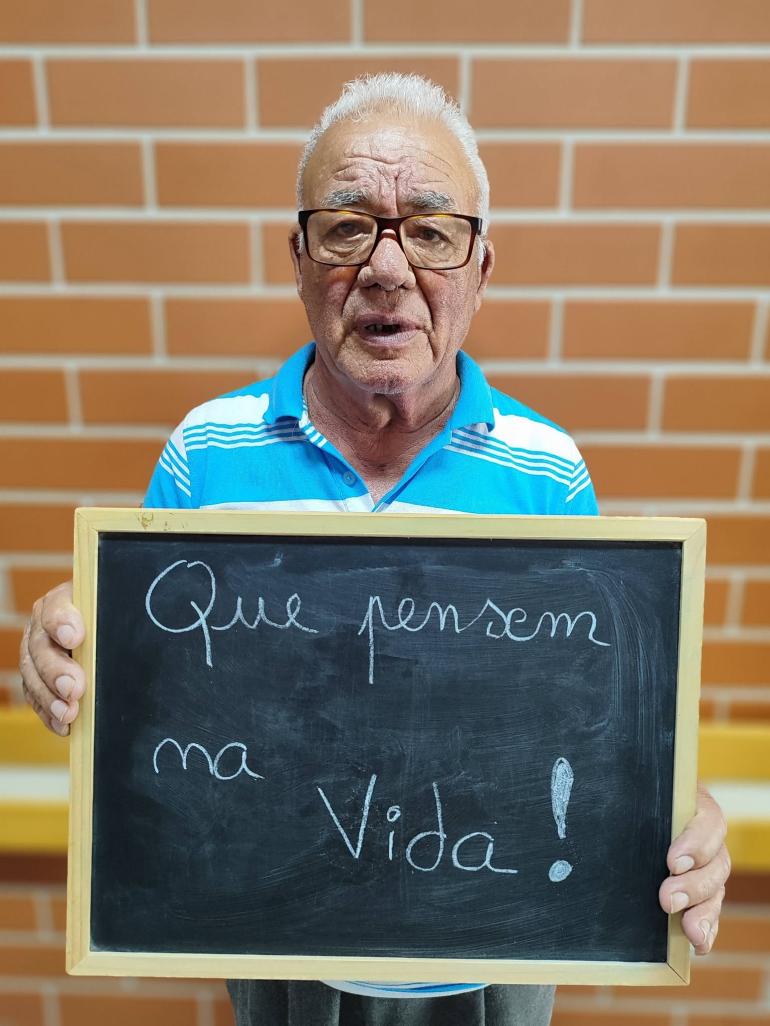 Que pensem
na
Vida!